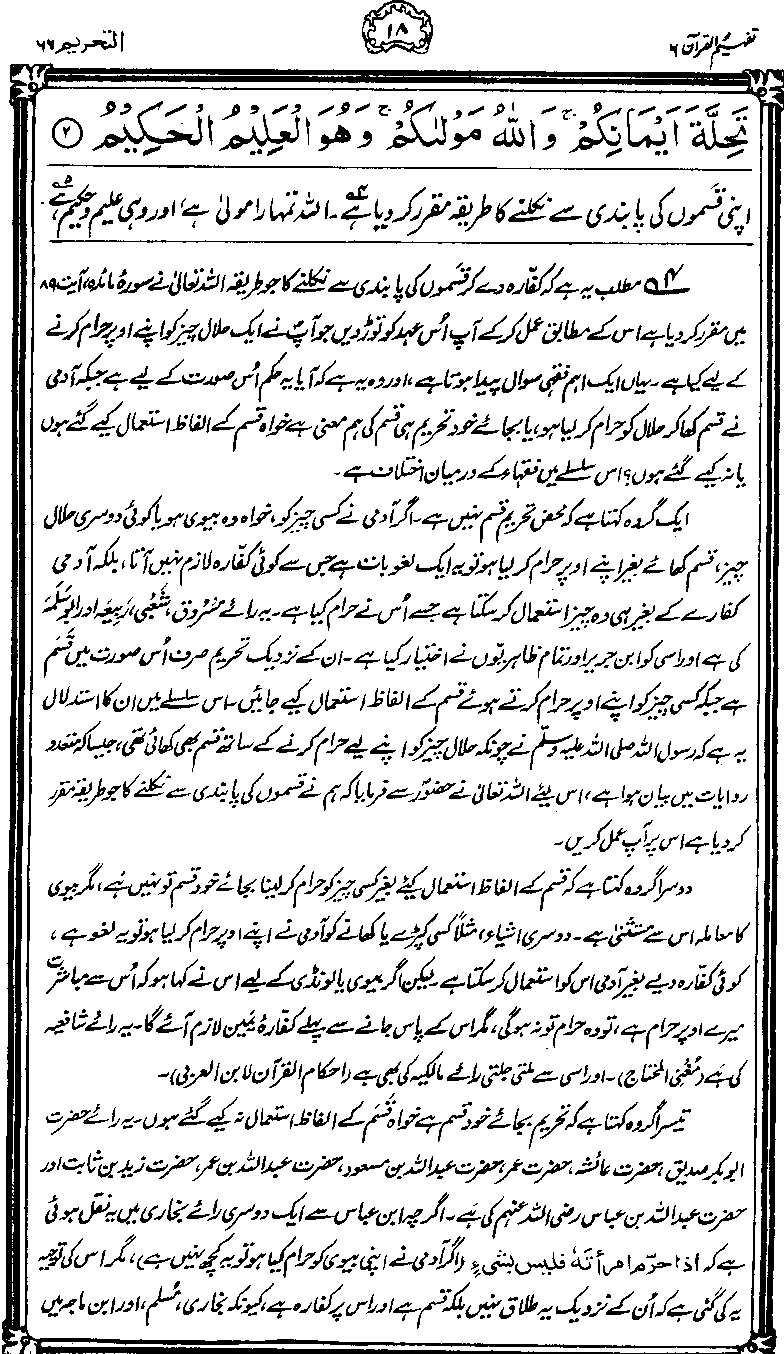 تفہیم القرآن ۶
۱۸
التحریم ۶۶
تَحِلَّةَ اَيْمَانِكُمْ ۚ وَاللّٰهُ مَوْلٰىكُمْ ۚ وَهُوَ الْعَلِيْمُ الْحَكِيْمُ ۲
اپنی قسموں کی پابندی سے نکلنے کا طریقہ مقرر کر دیا ہے۴۔ اللہ تمہارا مولیٰ ہے، اور وہی علیم و حکیم ہے۵،
۴ مطلب یہ ہے کہ کفّارہ دے کر قسموں کی پابندی سے نکلنے کا جو طریقہ اللہ تعالیٰ نے سورۂ مائدہ، آیت ۸۹
میں مقرر کر دیا ہے اس کے مطابق عمل کر کے آپ اُس عہد کو توڑ دیں جو آپؐ نے ایک حلال چیز کو اپنے اوپر حرام کرنے
کے لیے کیا ہے۔ یہاں ایک اہم فقہی سوال پیدا ہوتا ہے، اور وہ یہ ہے کہ آیا یہ حکم اُس صورت کے لیے ہے جبکہ آدمی
نے قسم کھا کر حلال کو حرام کر لیا ہو، یا بجائے خود تحریم ہی قسم کی ہم معنی ہے خواہ قسم کے الفاظ استعمال کیے گئے ہوں
یا نہ کیے گئے ہوں؟ اس سلسلے میں فقہاء کے درمیان اختلاف ہے۔
ایک گروہ کہتا ہے کہ محض تحریم قسم نہیں ہے۔ اگر آدمی نے کسی چیز کو، خواہ وہ بیوی ہو یا کوئی دوسری حلال
چیز، قسم کھائے بغیر اپنے اوپر حرام کر لیا ہو تو یہ ایک لغو بات ہے جس سے کوئی کفّارہ لازم نہیں آتا، بلکہ آدمی
کفارے کے بغیر ہی وہ چیز استعمال کر سکتا ہے جسے اُس نے حرام کیا ہے۔ یہ رائے مسروق، شعبی، ربیعہ اور ابوسلمہ
کی ہے اور اسی کو ابن جریر اور تمام ظاہریوں نے اختیار کیا ہے۔ ان کے نزدیک تحریم صرف اُس صورت میں قسم
ہے جبکہ کسی چیز کو اپنے اوپر حرام کرتے ہوئے قسم کے الفاظ استعمال کیے جائیں۔ اس سلسلے میں ان کا استدلال
یہ ہے کہ رسول اللہ صلی اللہ علیہ وسلّم نے چونکہ حلال چیز کو اپنے لیے حرام کرنے کے ساتھ قسم بھی کھائی تھی، جیسا کہ متعدد
روایات میں بیان ہوا ہے، اس لیے اللہ تعالیٰ نے حضورؐ سے فرمایا کہ ہم نے قسموں کی پابندی سے نکلنے کا جو طریقہ مقرر
کر دیا ہے اس پر آپ عمل کریں۔
دوسرا گروہ کہتا ہے کہ قسم کے الفاظ استعمال کیے بغیر کسی چیز کو حرام کر لینا بجائے خود قسم تو نہیں ہے، مگر بیوی
کا معاملہ اس سے مستثنیٰ ہے۔ دوسری اشیاء، مثلاً کسی کپڑے یا کھانے کو آدمی نے اپنے اوپر حرام کر لیا ہو تو یہ لغو ہے،
کوئی کفّارہ دیے بغیر آدمی اس کو استعمال کر سکتا ہے۔ لیکن اگر بیوی یا لونڈی کے لیے اس نے کہا ہو کہ اُس سے مباشرت
میرے اوپر حرام ہے، تو وہ حرام تو نہ ہوگی، مگر اس کے پاس جانے سے پہلے کفّارۂ یمین لازم آئے گا۔ یہ رائے شافعیہ
کی ہے (مُغنی المحتاج)۔ اور اسی سے ملتی جلتی رائے مالکیہ کی بھی ہے (احکام القرآن لابن العربی)۔
تیسرا گروہ کہتا ہے کہ تحریم بجائے خود قسم ہے خواہ قسم کے الفاظ استعمال نہ کیے گئے ہوں۔ یہ رائے حضرت
ابوبکر صدیق، حضرت عائشہ، حضرت عمر، حضرت عبداللہ بن مسعود، حضرت عبداللہ بن عمر، حضرت زید بن ثابت اور
حضرت عبداللہ بن عباس رضی اللہ عنہم کی ہے۔ اگرچہ ابن عباس سے ایک دوسری رائے بخاری میں یہ نقل ہوئی
ہے کہ اذا حرّم امرأتهٗ فليس بشیءٍ (اگر آدمی نے اپنی بیوی کو حرام کیا ہو تو یہ کچھ نہیں ہے)، مگر اس کی توجیہ
یہ کی گئی ہے کہ اُن کے نزدیک یہ طلاق نہیں بلکہ قسم ہے اور اس پر کفارہ ہے، کیونکہ بخاری، مُسلم، اور ابن ماجہ میں